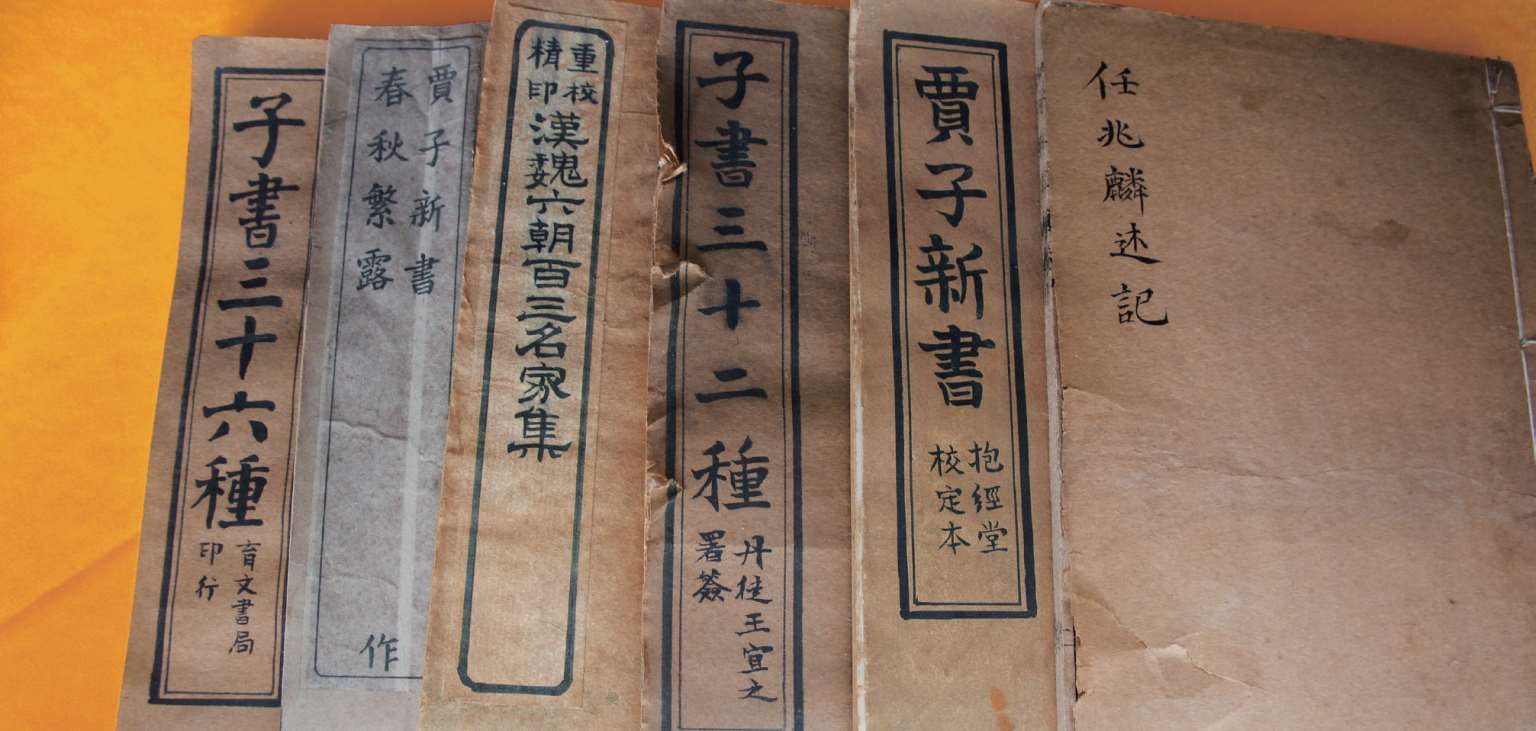 子書三十六種
育文書局
印行
賈子新書
春秋繁露
作
重校
精印
漢魏六朝百三名家集
子書三十二種
丹徒王宜之
署簽
賈子新書
抱經堂
校定本
任兆麟述記